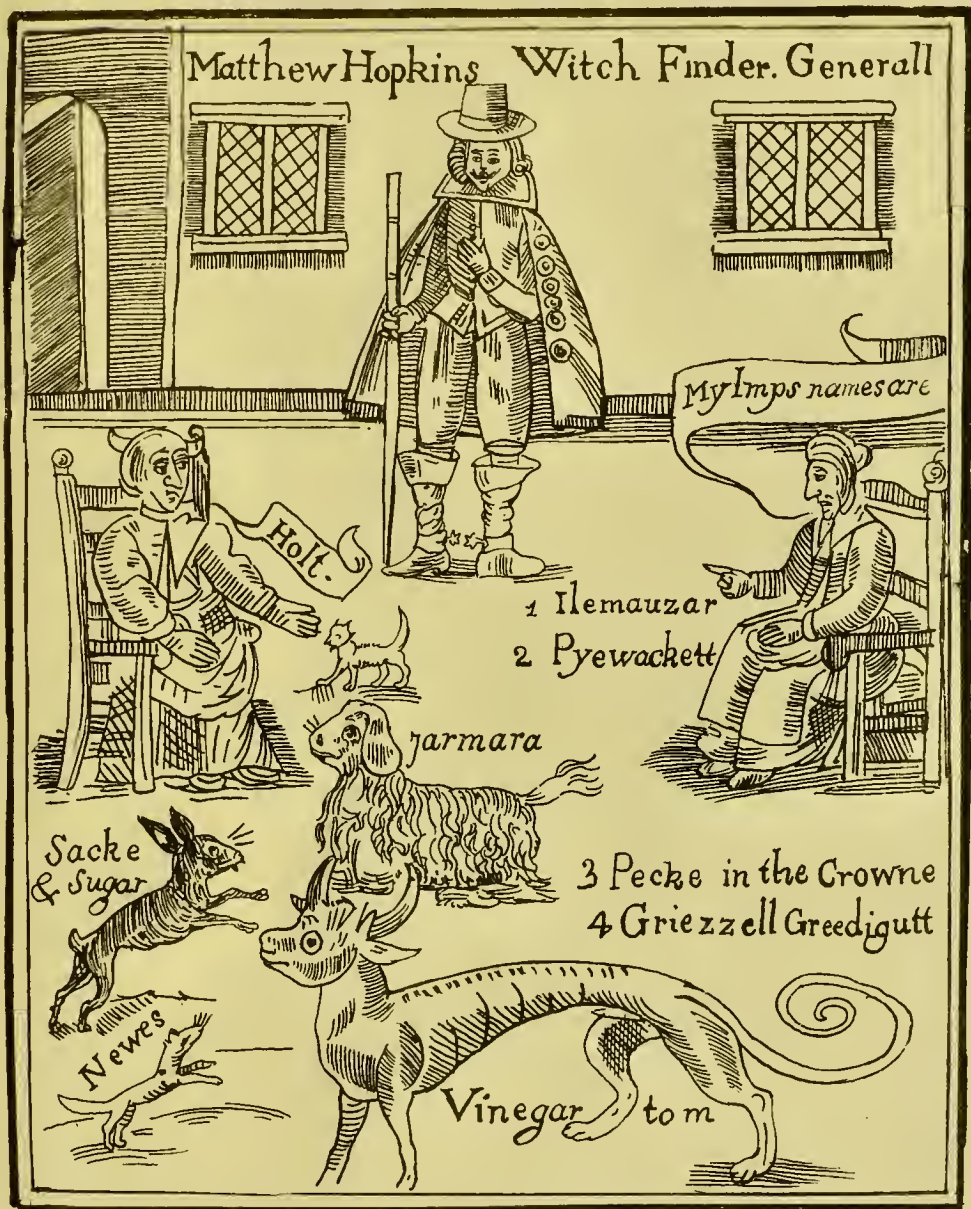 Matthew Hopkins Witch Finder. Generall
My Imps names are
Holt.
1 Ilemauzar
2 Pyewackett
Jarmara
Sacke
& Sugar
3 Pecke in the Crowne
4 Griezzell Greedigutt
Newes
Vinegar tom